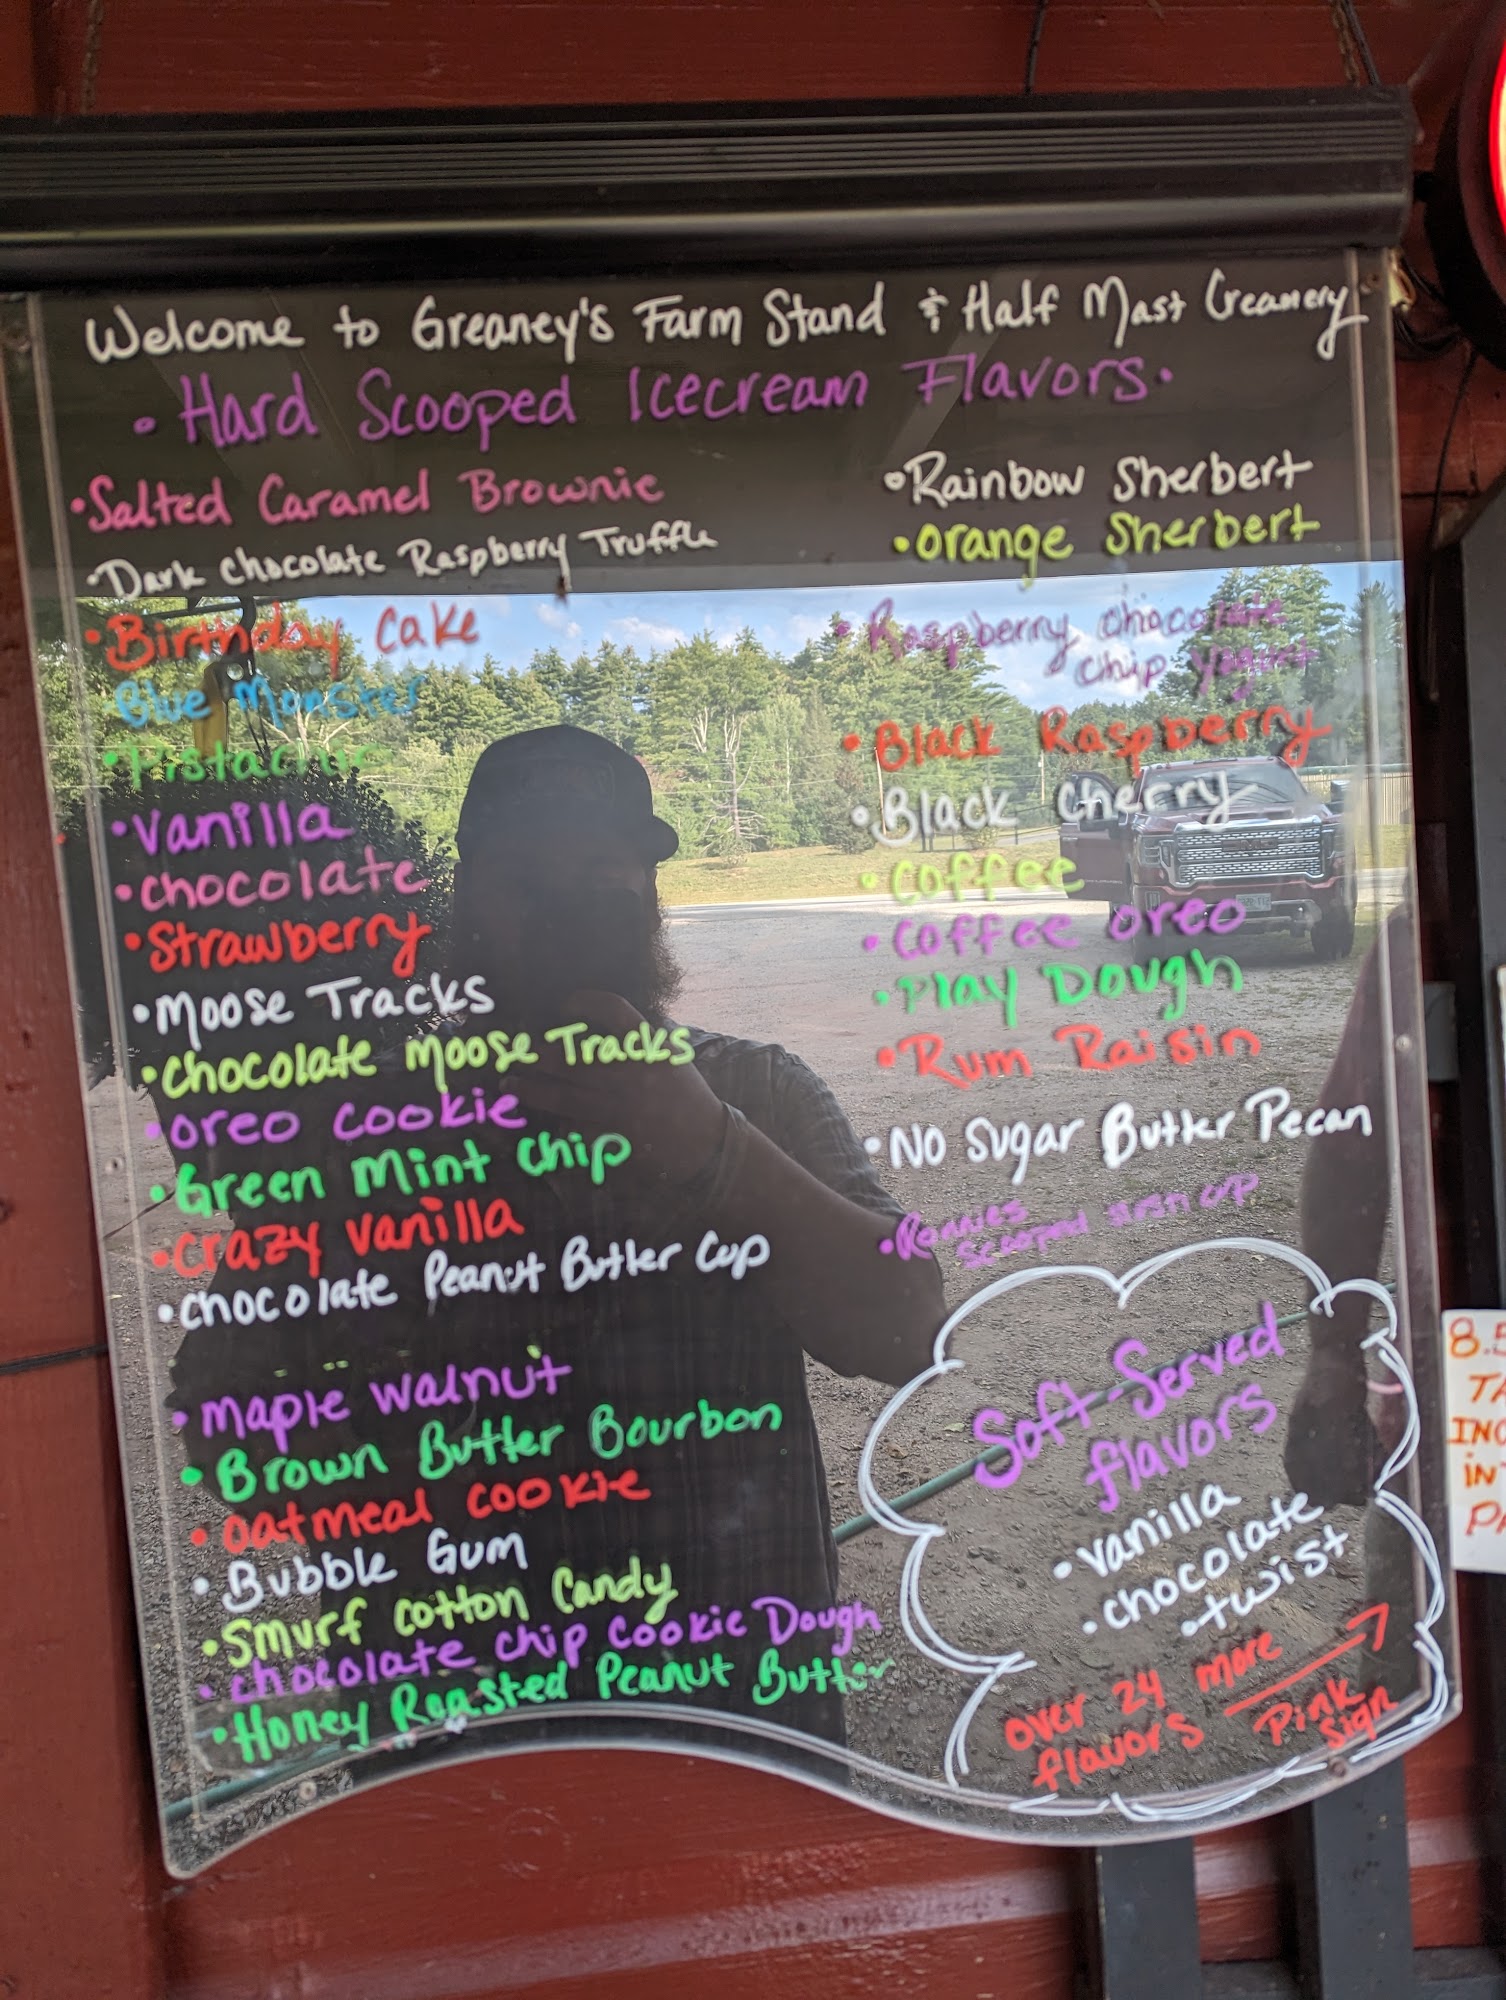 Welcome to Greaney's Farm Stand & Half Mast Creamery
• Hard Scooped Icecream Flavors •
• Salted Caramel Brownie
• Dark Chocolate Raspberry Truffle
• Birthday Cake
Blue Monster
• Pistachio
• Vanilla
• Chocolate
• Strawberry
• Moose Tracks
• Chocolate Moose Tracks
• Oreo Cookie
• Green Mint Chip
• Crazy Vanilla
• Chocolate Peanut Butter Cup
• Maple Walnut
• Brown Butter Bourbon
• Oatmeal Cookie
• Bubble Gum
• Smurf Cotton Candy
• Chocolate Chip Cookie Dough
• Honey Roasted Peanut Butter
• Rainbow Sherbert
• Orange Sherbert
• Raspberry Chocolate
Chip Yogurt
• Black Raspberry
• Black Cherry
• Coffee
• Coffee Oreo
• Play Dough
• Rum Raisin
• No Sugar Butter Pecan
Scooped cup
Soft-Served
flavors
• Vanilla
• Chocolate
• Twist
over 24 more
flavors
Pink
Sign
8.5
IN